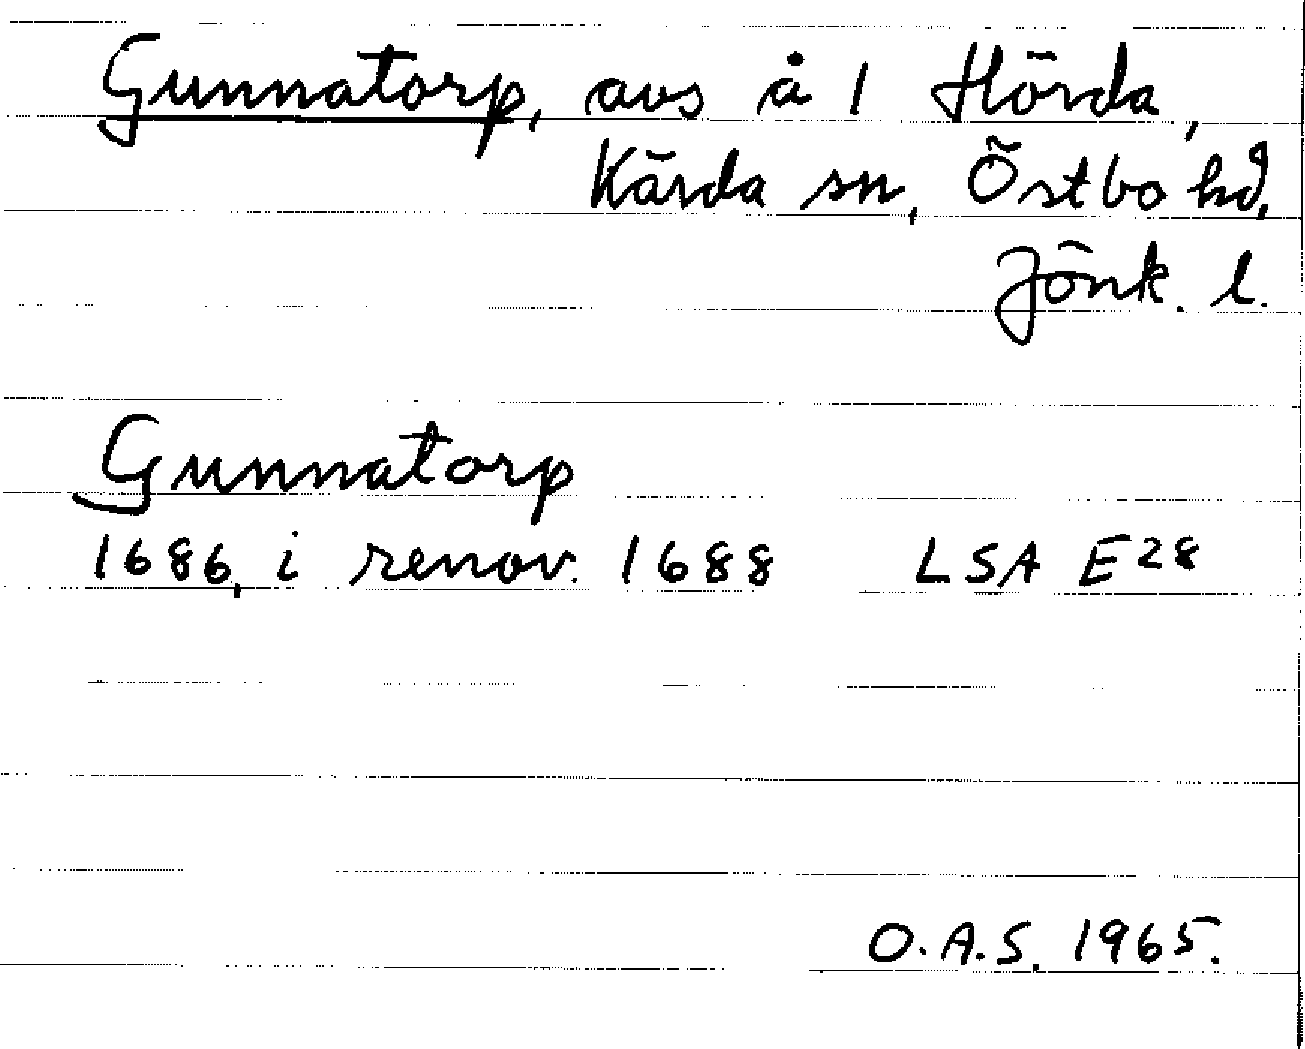 Gunnatorp, avs å 1 Hörda,
Kärda sn, Östbo hd,
Jönk. l.
Gunnatorp
1686, i renov. 1688 LSA E28
O.A.S. 1965.